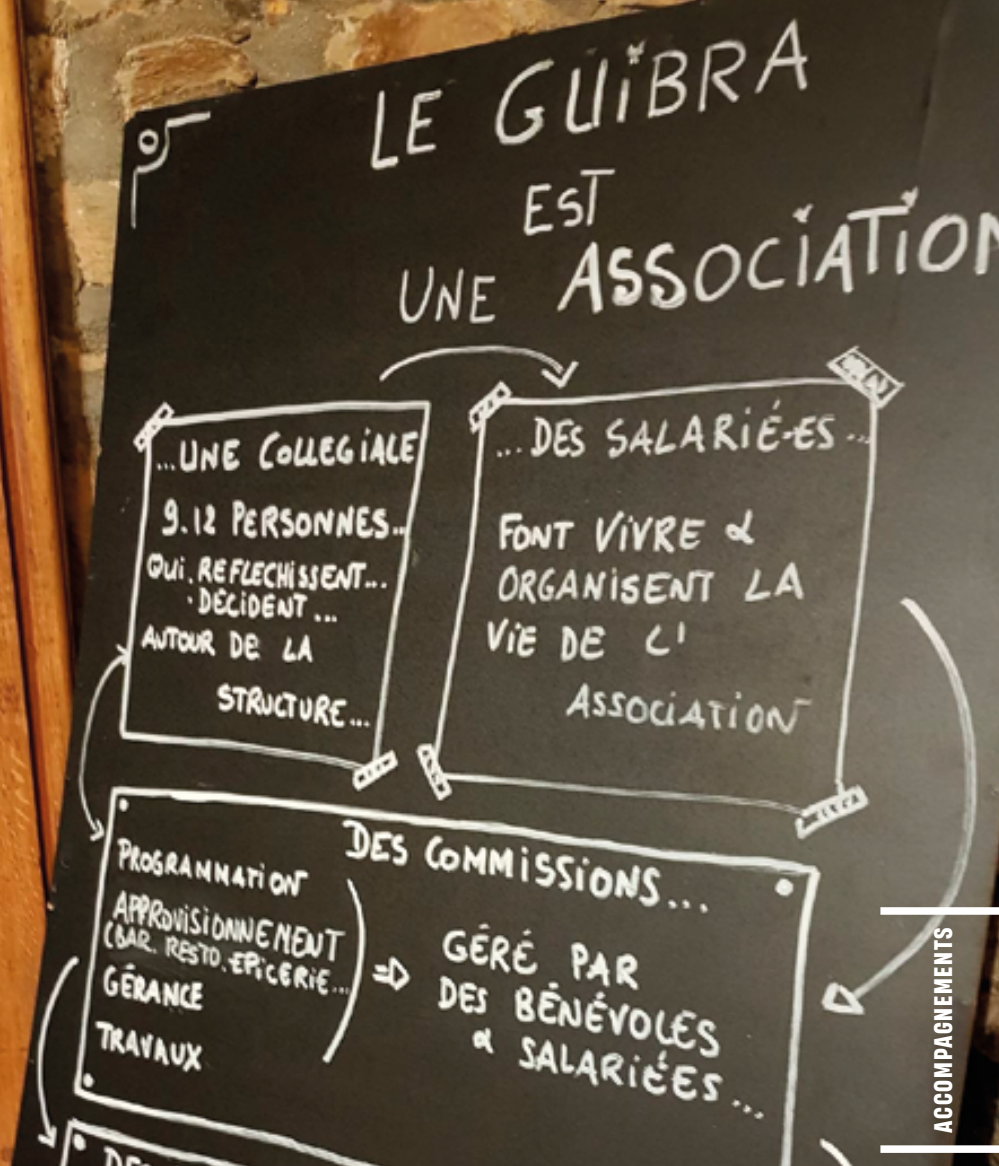 LE GUiBRA
EST
UNE ASSOCiATiON
...UNE COLLEGiALE
9.12 PERSONNES...
QUi. REFLECHiSSENT...
. DECiDENT...
AUTOUR DE LA
STRUCTURE...
...DES SALARiÉ-ES...
FONT ViVRE &
ORGANiSENT LA
ViE DE L'
ASSOCiATiON
DES COMMiSSiONS...
PROGRAMMATiON
APPROViSiONNEMENT
(BAR. RESTO. EPiCERiE...
GÉRANCE
TRAVAUX
⇒
GÉRÉ PAR
DES BÉNÉVOLES
& SALARiÉES...
ACCOMPAGNEMENTS